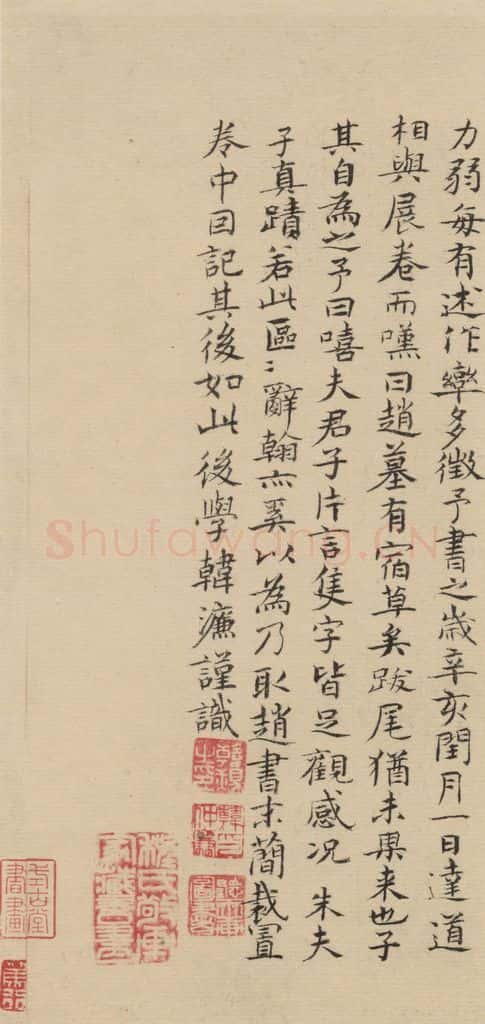 力弱每有述作率多徵予書之歲辛亥閏月一日達道
相與展卷而嘆曰趙墓有宿草矣跋尾猶未果来也子
其自為之予曰嘻夫君子片言隻字皆足觀感况 朱夫
子真蹟若此區〻辭翰亦奚以為乃取趙書末簡裁置
卷中因記其後如此後學韓濂謹識
Shufawang.CN